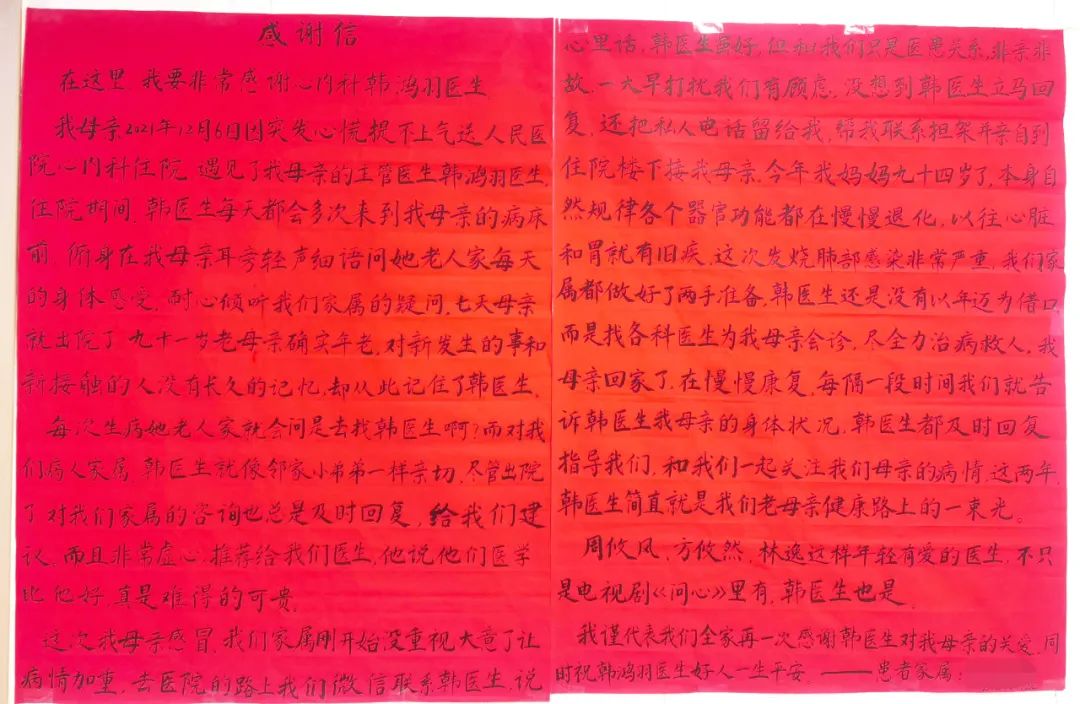 感谢信
在这里,我要非常感谢心内科韩鸿羽医生
我母亲2021年12月6日因突发心慌提不上气送人民医
院心内科住院,遇见了我母亲的主管医生韩鸿羽医生,
住院期间,韩医生每天都会多次来到我母亲的病床
前,俯身在我母亲耳旁轻声细语问她老人家每天
的身体感受,耐心倾听我们家属的疑问,七天母亲
就出院了,九十一岁老母亲确实年老,对新发生的事和
新接触的人没有长久的记忆,却从此记住了韩医生,
每次生病她老人家就会问是去找韩医生啊?而对我
们病人家属,韩医生就像邻家小弟弟一样亲切,尽管出院
了对我们家属的咨询也总是及时回复,给我们建
议,而且非常虚心推荐给我们医生,他说他们医学
比他好,真是难得的可贵。
这次我母亲感冒,我们家属刚开始没重视大意了让
病情加重,去医院的路上我们微信联系韩医生,说
心里话,韩医生虽好,但和我们只是医患关系,非亲非
故,一大早打扰我们有顾虑,没想到韩医生立马回
复,还把私人电话留给我,帮我联系担架并亲自到
住院楼下接我母亲,今年我妈妈九十四岁了,本身自
然规律各个器官功能都在慢慢退化,以往心脏
和胃就有旧疾,这次发烧肺部感染非常严重,我们家
属都做好了两手准备,韩医生还是没有以年迈为借口,
而是找各科医生为我母亲会诊,尽全力治病救人,我
母亲回家了,在慢慢康复,每隔一段时间我们就告
诉韩医生我母亲的身体状况,韩医生都及时回复
指导我们,和我们一起关注我们母亲的病情,这两年,
韩医生简直就是我们老母亲健康路上的一束光。
周筱风,方筱然,林逸这样年轻有爱的医生,不只
是电视剧《问心》里有,韩医生也是,
我谨代表我们全家再一次感谢韩医生对我母亲的关爱,同
时祝韩鸿羽医生好人一生平安,——患者家属: